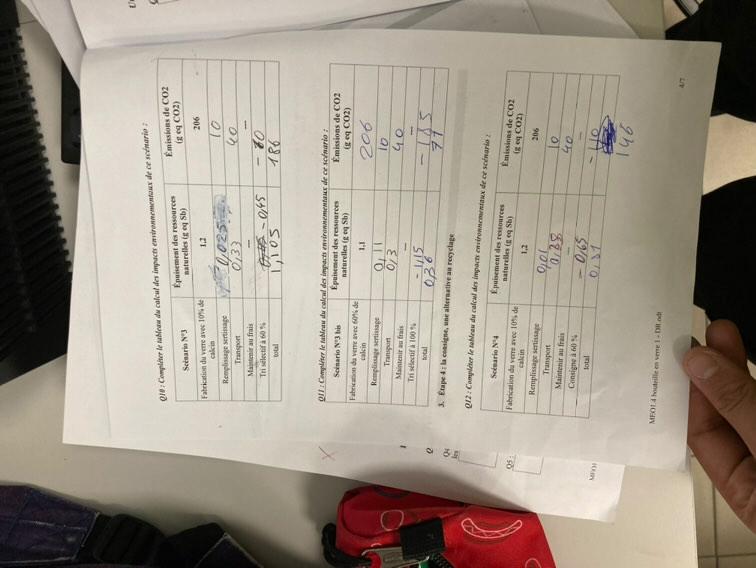 Q10 : Compléter le tableau du calcul des impacts environnementaux de ce scénario :
Scénario N°3 Épuisement des ressources naturelles (g eq Sb) Émissions de CO2 (g eq CO2)
Fabrication du verre avec 10% de calcin 1,2 206
Remplissage sertissage 0,025 10
Transport 0,33 40
Maintenir au frais — —
Tri sélectif à 60 % - 0,45 - 70
total 1,105 186
Q11 : Compléter le tableau du calcul des impacts environnementaux de ce scénario :
Scénario N°3 bis Épuisement des ressources naturelles (g eq Sb) Émissions de CO2 (g eq CO2)
Fabrication du verre avec 60% de calcin 1,1 206
Remplissage sertissage 0,11 10
Transport 0,3 40
Maintenir au frais — —
Tri sélectif à 100 % - 1,15 - 185
total 0,36 71
3. Étape 4 : la consigne, une alternative au recyclage
Q12 : Compléter le tableau du calcul des impacts environnementaux de ce scénario :
Scénario N°4 Épuisement des ressources naturelles (g eq Sb) Émissions de CO2 (g eq CO2)
Fabrication du verre avec 10% de calcin 1,2 206
Remplissage sertissage 0,01 10
Transport 40
Maintenir au frais — —
Consigne à 60 % - 0,65 - 110
total 146
MEO1.4 bouteille en verre 1 - DR.odt
4/7
Q4
les
Q5 :
MEO1